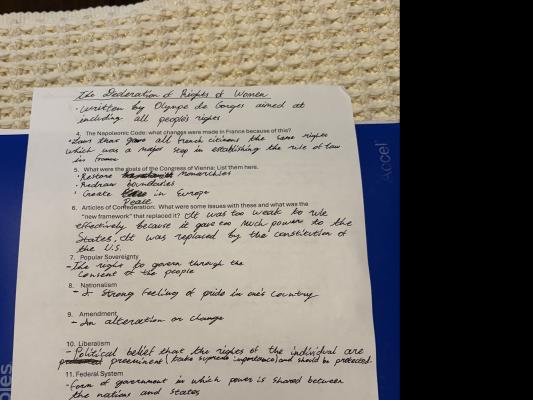 The Declaration of Rights of Women
• written by Olympe de Gorges aimed at
including all people's rights
4. The Napoleonic Code: what changes were made in France because of this?
• Laws that gave all french citizens the same rights
which was a major step in establishing the rule of law
in france
5. What were the goals of the Congress of Vienna: List them here.
• Restore monarchies
• Redraw boundaries
• Create Peace in Europe
6. Articles of Confederation: What were some issues with these and what was the
"new framework" that replaced it? It was too weak to rule
effectively because it gave too much power to the
States, It was replaced by the constitution of
the U.S.
7. Popular Sovereignty
- The right to govern through the
consent of the people
8. Nationalism
- A strong feeling of pride in one's country
9. Amendment
- An alteration or change
10. Liberalism
- Political belief that the rights of the individual are
preeminent (take supreme importance) and should be protected.
11. Federal System
- form of government in which power is shared between
the nations and states
Accel